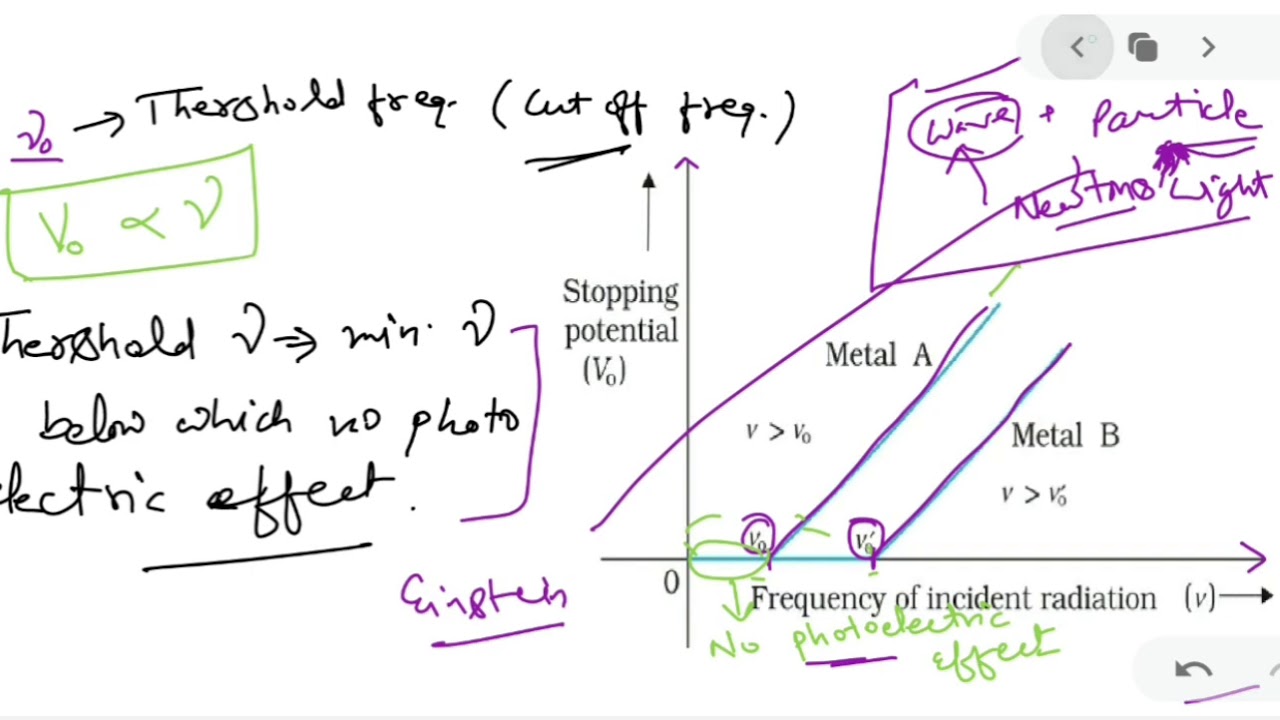 ν₀ → Thershold freq. (Cut off freq.)
V₀ ∝ ν
Thershold ν → min. ν
below which no photo
electric effect.
Einstein
Wave + Particle
Light
Stopping
potential
(V₀)
Metal A
ν > ν₀
Metal B
ν > ν₀′
ν₀
ν₀′
0
Frequency of incident radiation (ν)→
No photoelectric
effect